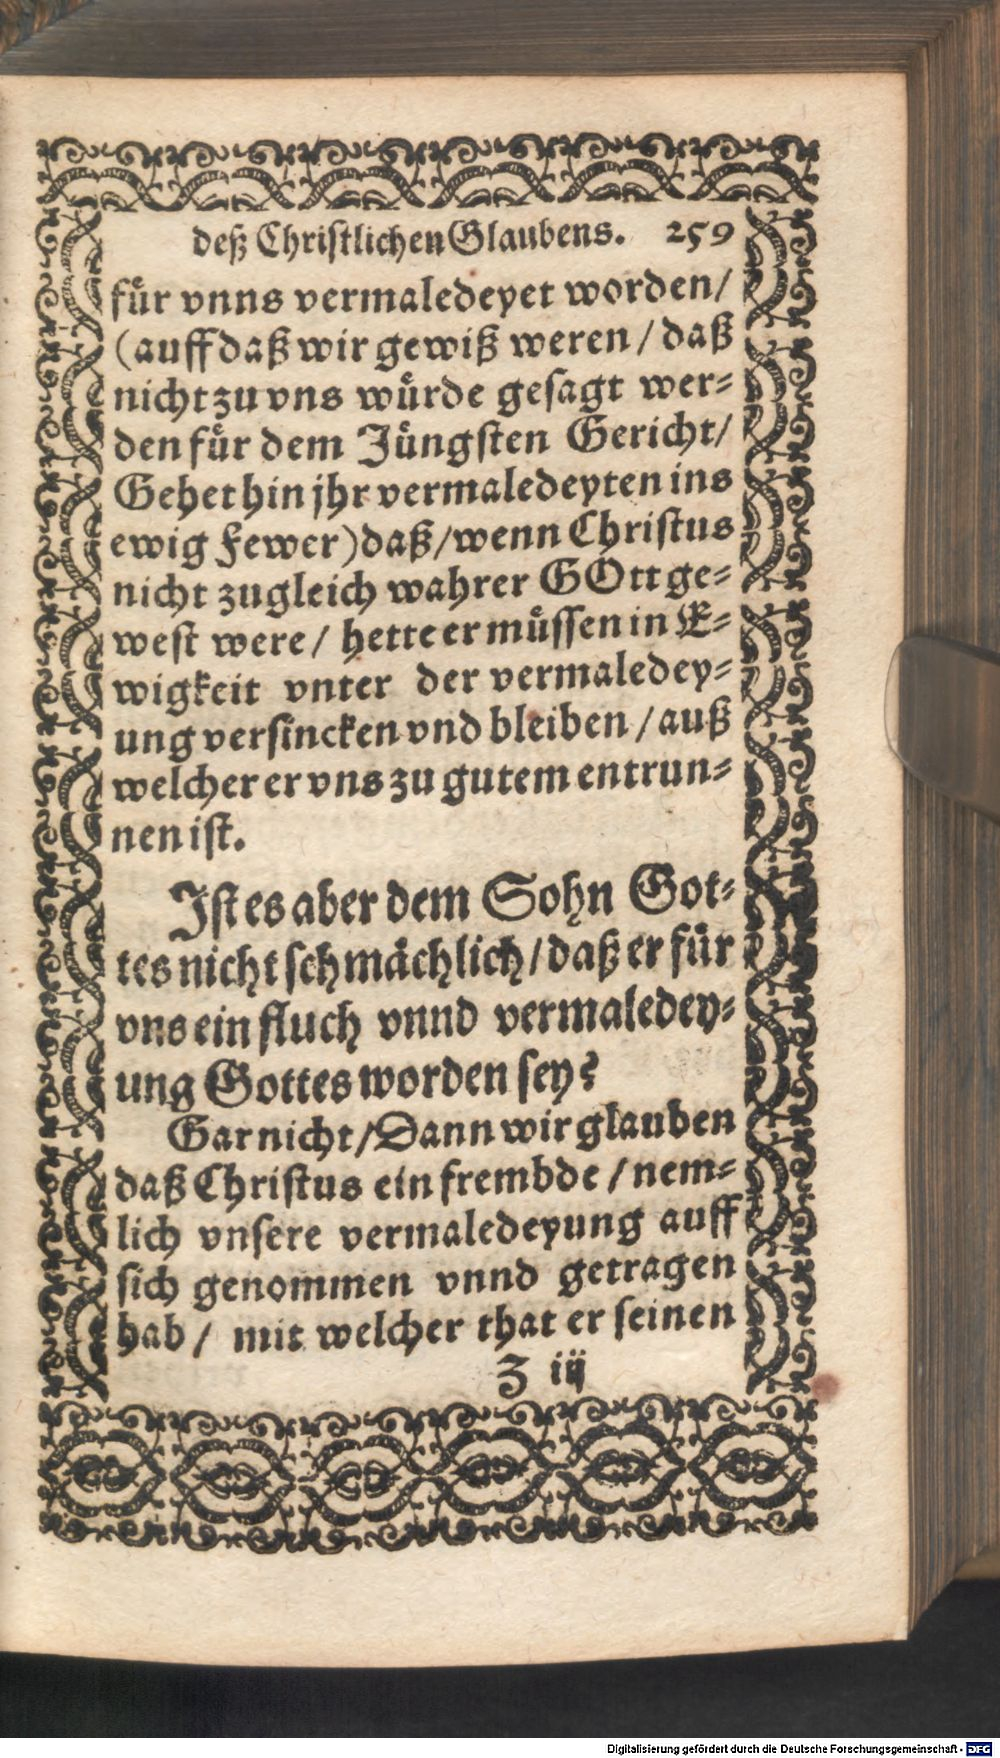 deß Christlichen Glaubens. 259
fuͤr vnns vermaledeyet worden/
(auff daß wir gewiß weren / daß
nicht zu vns wuͤrde gesagt wer⸗
den fuͤr dem Juͤngsten Gericht/
Gehet hin jhr vermaledeyten ins
ewig Fewer) daß/ wenn Christus
nicht zugleich wahrer GOtt ge⸗
west were / hette er muͤssen in E⸗
wigkeit vnter der vermaledey⸗
ung versincken vnd bleiben / auß
welcher er vns zu gutem entrun⸗
nen ist.
Ist es aber dem Sohn Got⸗
tes nicht schmaͤchlich/ daß er fuͤr
vns ein fluch vnnd vermaledey⸗
ung Gottes worden sey?
Gar nicht/ Dann wir glauben
daß Christus ein frembde / nem⸗
lich vnsere vermaledeyung auff
sich genommen vnnd getragen
hab / mit welcher that er seinen
Z iij
Digitalisierung gefördert durch die Deutsche Forschungsgemeinschaft - DFG